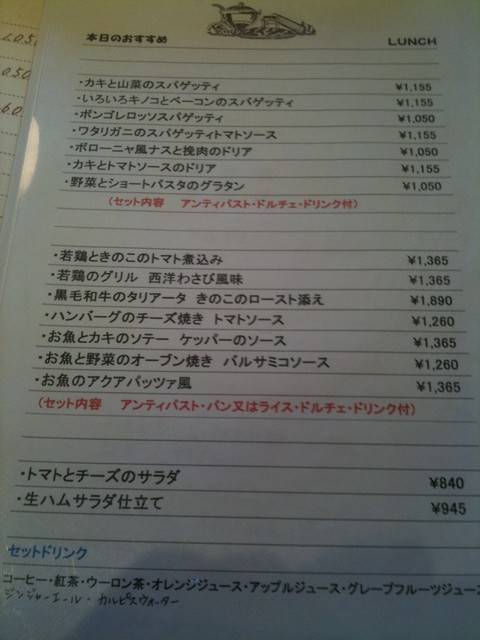 本日のおすすめ LUNCH
・カキと山菜のスパゲッティ ¥1,155
・いろいろキノコとベーコンのスパゲッティ ¥1,155
・ボンゴレロッソスパゲッティ ¥1,050
・ワタリガニのスパゲッティトマトソース ¥1,155
・ボローニャ風ナスと挽肉のドリア ¥1,050
・カキとトマトソースのドリア ¥1,155
・野菜とショートパスタのグラタン ¥1,050
(セット内容 アンティパスト・ドルチェ・ドリンク付)
・若鶏ときのこのトマト煮込み ¥1,365
・若鶏のグリル 西洋わさび風味 ¥1,365
・黒毛和牛のタリアータ きのこのロースト添え ¥1,890
・ハンバーグのチーズ焼き トマトソース ¥1,260
・お魚とカキのソテー ケッパーのソース ¥1,365
・お魚と野菜のオーブン焼き バルサミコソース ¥1,260
・お魚のアクアパッツァ風 ¥1,365
(セット内容 アンティパスト・パン又はライス・ドルチェ・ドリンク付)
・トマトとチーズのサラダ ¥840
・生ハムサラダ仕立て ¥945
セットドリンク
コーヒー・紅茶・ウーロン茶・オレンジジュース・アップルジュース・グレープフルーツジュース
ジンジャーエール・カルピスウォーター